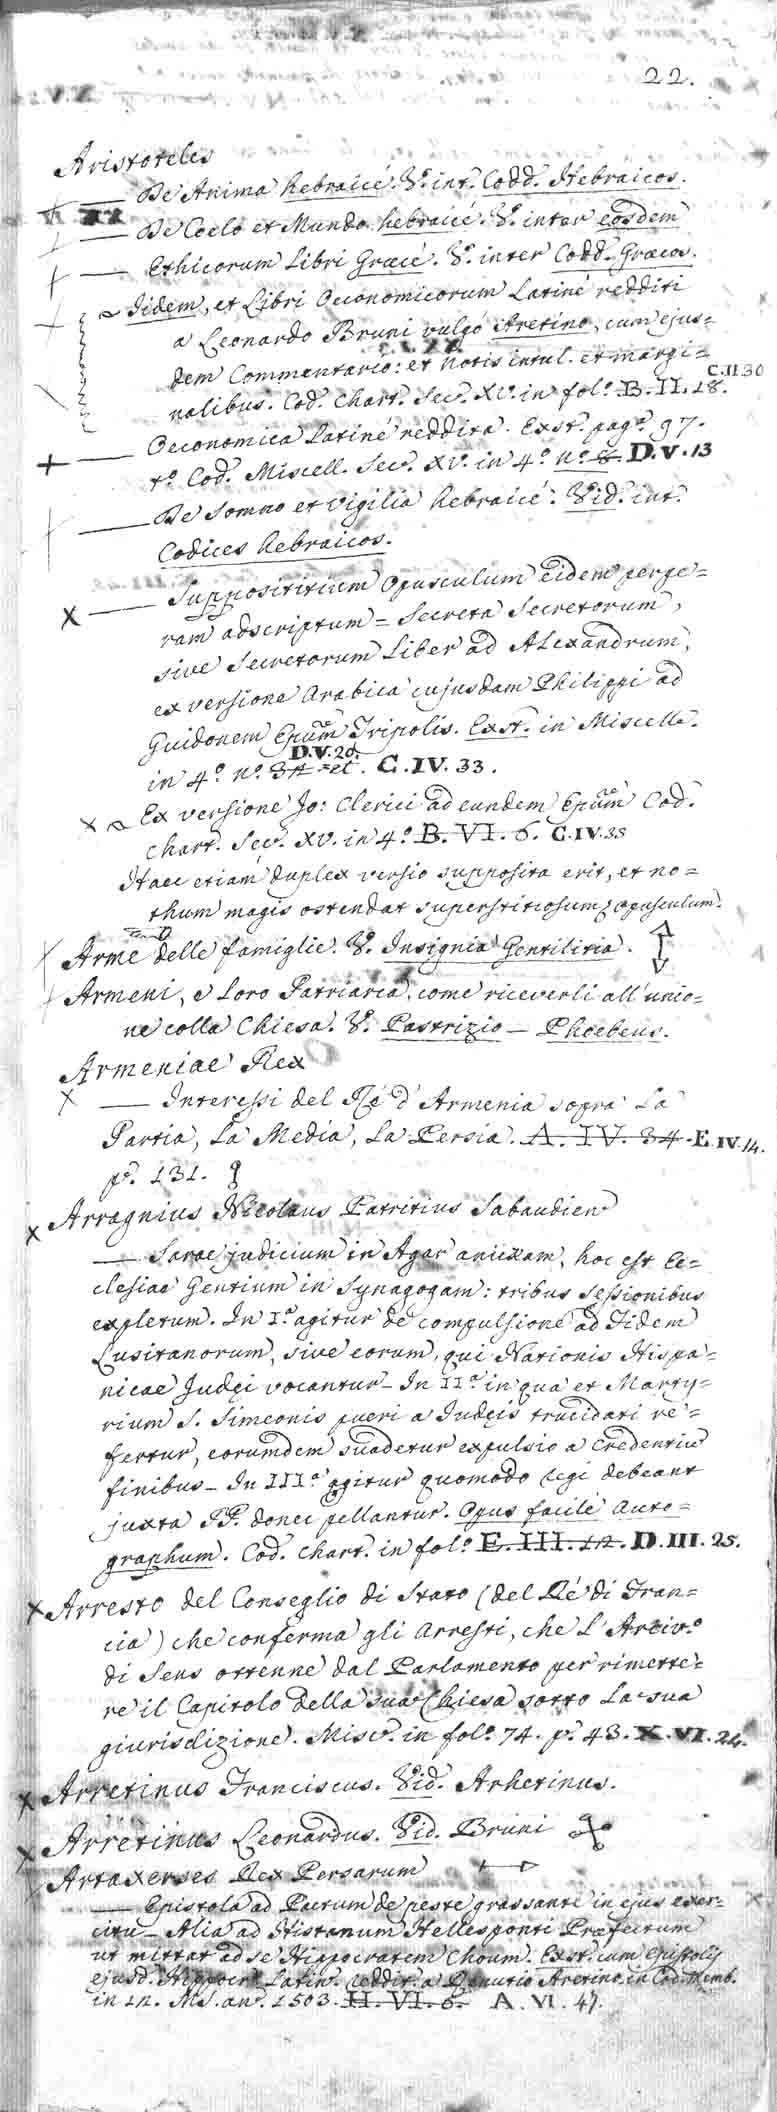 22.
Aristoteles
— De Anima hebraicé. V. int. Codd. Hebraicos.
— De Coelo et Mundo hebraicé. V. inter eosdem
— Ethicorum Libri Graecé. V. inter Codd. Graecos.
Iidem, et Libri Oeconomicorum Latiné redditi
a Leonardo Bruni vulgó Aretino, cum ejus=
dem Commentario: et notis intul. et margi=
C.II.30
nalibus. Cod. chart. Sec. XV. in fol. B. II. 18.
— Oeconomica Latiné reddita. Exst. pag. 97.
to. Cod. Miscell. Sec. XV. in 4o no. 8. D.V.13
— De Somno et Vigilia hebraicé. Vid. int.
Codices hebraicos.
X — Supposititium Opusculum eidem perpe=
ram adscriptum = Secreta Secretorum,
sive Secretorum Liber ad Alexandrum,
ex versione Arabica cujusdam Philippi ad
Guidonem Epum Tripolis. Exst. in Miscell.
D.V.20
in 4o no. 34 = et. C.IV.33.
X Ex versione Jo: Clerici ad eundem Epum Cod.
chart. Sec. XV. in 4o B. VI. 6. C.IV.35
Haec etiam duplex versio supposita erit, et no=
thum magis ostendat superstitiosum opusculum.
Arme delle famiglie. V. Insignia Gentilitia.
Armeni, e loro Patriarca, come riceverli all'unio=
ne colla Chiesa. V. Pastrizio — Phoebeus.
Armeniae Rex
X — Interessi del Ré d'Armenia sopra la
Partia, la Media, la Persia. A. IV. 34. E.IV.14.
p. 131.
X Arragnius Nicolaus Patritius Sabaudien
— Sarae judicium in Agar ancillam, hoc est Ec=
clesiae Gentium in Synagogam: tribus sessionibus
expletum. In Ia agitur de compulsione ad Fidem
Lusitanorum, sive eorum, qui Nationis Hispa=
nicae Judęi vocantur — In IIa in qua et Marty=
rium S. Simeonis pueri a Judęis trucidati re=
fertur, eorumdem suadetur expulsio a Credentiu
finibus — In IIIa agitur quomodo regi debeant
juxta PP. donec pellantur. Opus facilé auto=
graphum. Cod. chart. in fol. E. III. 12. D.III.25.
X Arresto del Conseglio di Stato (del Ré di Fran=
cia) che conferma gli Arresti, che l'Arciv.o
di Sens ottenne dal Parlamento per rimette=
re il Capitolo della sua Chiesa sotto la sua
giurisdizione. Misc. in fol. 74. p. 43. X.VI.24.
X Arretinus Franciscus. Vid. Arhetinus.
X Arretinus Leonardus. Vid. Bruni
Artaxerses Rex Persarum
— Epistola ad Paetum de peste grassante in ejus exer=
citu — Alia ad Histanum Hellesponti Praefectum
ut mittat ad se Hippocratem Choum. Exst. cum epistolis
ejusd. Hippocr. Latin. reddit. a Rinutio Aretino in Cod. memb.
in 12. MS. an. 1503. H. VI. 6. A. VI. 47.